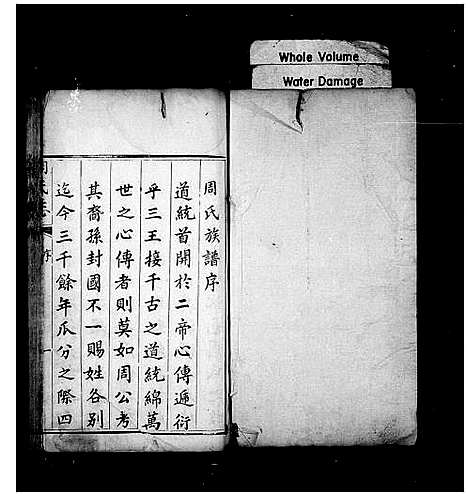 Whole Volume
Water Damage
周氏族譜序
道統首開於二帝心傳遞衍
乎三王接千古之道統綿萬
世之心傳者則莫如周公考
其裔孫封國不一賜姓各別
迄今三千餘年瓜分之際四